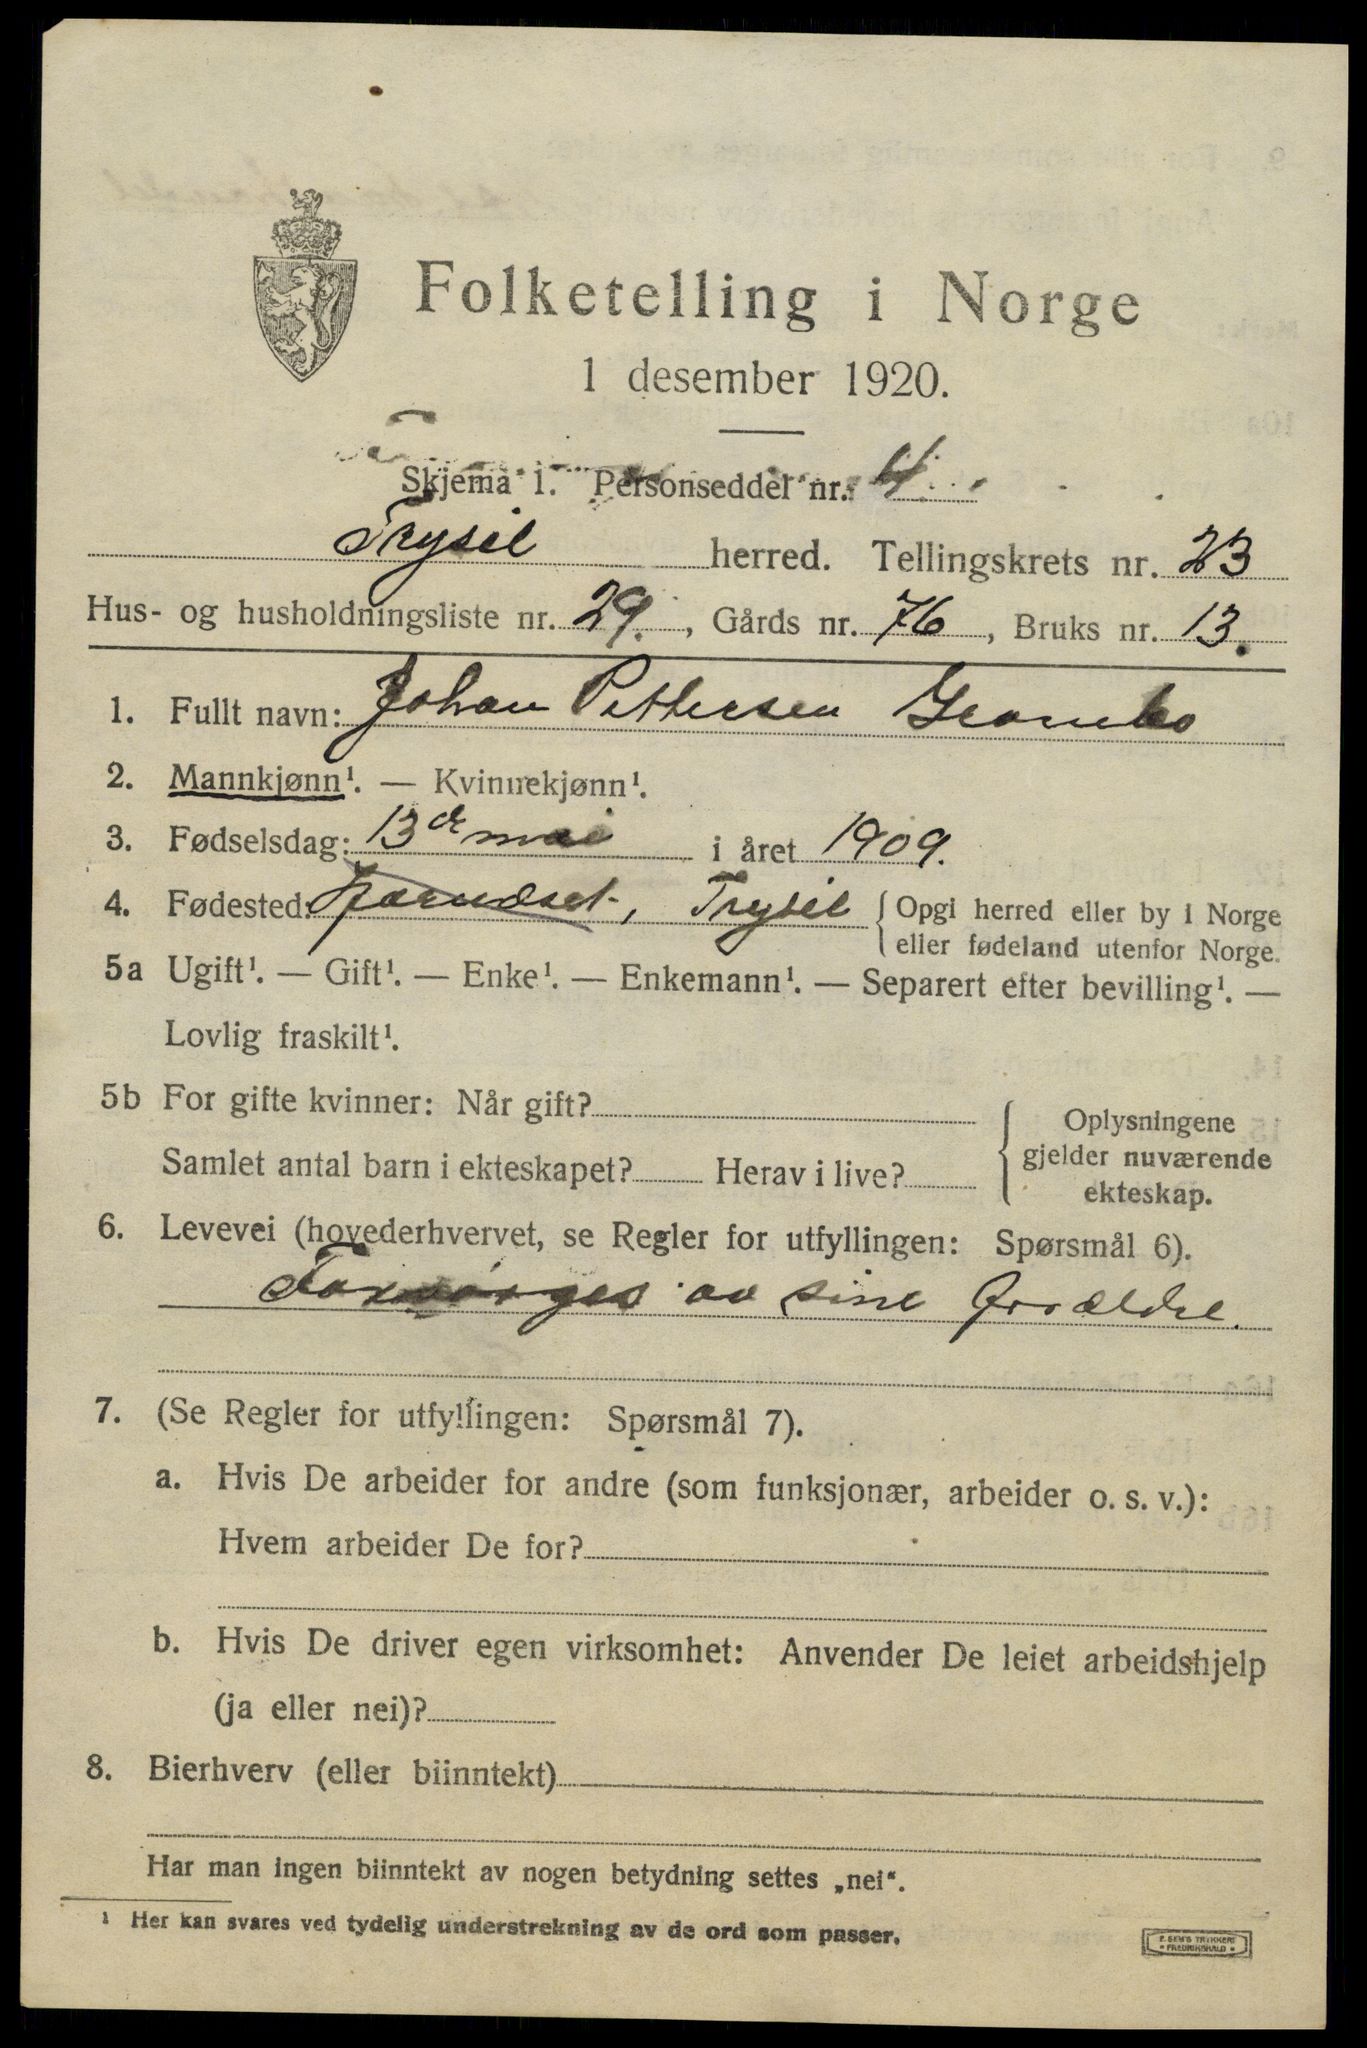 Folketelling i Norge
1 desember 1920.
Skjema 1. Personseddel nr. 4
Trysil herred. Tellingskrets nr. 23
Hus- og husholdningsliste nr. 29., Gårds nr. 76, Bruks nr. 13.
1. Fullt navn: Johan Pettersen
2. Mannkjønn¹. — Kvinnekjønn¹.
3. Fødselsdag: 13de mai i året 1909.
4. Fødested: , Trysil { Opgi herred eller by i Norge
eller fødeland utenfor Norge.
5a Ugift¹. — Gift¹. — Enke¹. — Enkemann¹. — Separert efter bevilling¹. —
Lovlig fraskilt¹.
5b For gifte kvinner: Når gift?
Samlet antal barn i ekteskapet? Herav i live?
Oplysningene
gjelder nuværende
ekteskap.
6. Levevei (hovederhvervet, se Regler for utfyllingen: Spørsmål 6).
Forsørges av sine
7. (Se Regler for utfyllingen: Spørsmål 7).
a. Hvis De arbeider for andre (som funksjonær, arbeider o. s. v.):
Hvem arbeider De for?
b. Hvis De driver egen virksomhet: Anvender De leiet arbeidshjelp
(ja eller nei)?
8. Bierhverv (eller biinntekt)
Har man ingen biinntekt av nogen betydning settes „nei“.
¹ Her kan svares ved tydelig understrekning av de ord som passer.
E. SEM'S TRYKKERI
• FREDRIKSHALD •